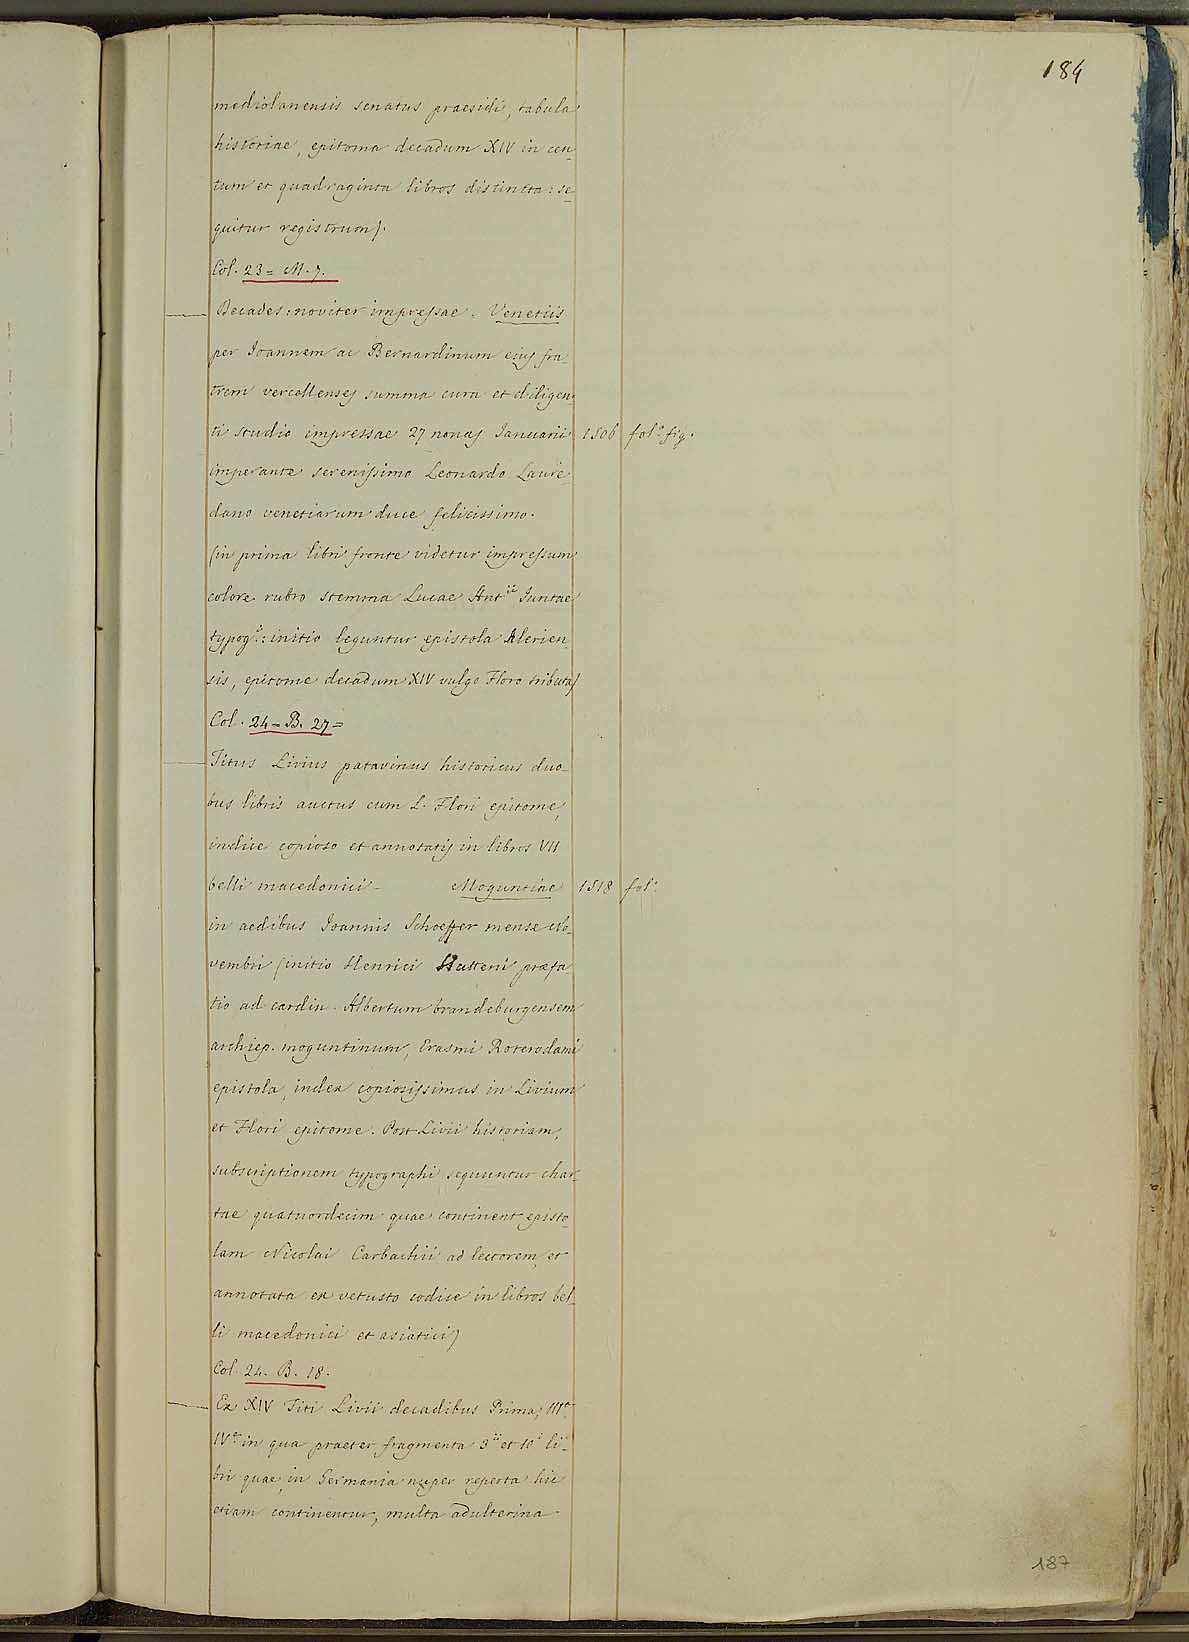 184
mediolanensis senatus praesidi, tabula
historiae, epitoma decadum XIV in cen_
tum et quadraginta libros distincta: se_
quitur registrum).
Col. 23 = M. 7.
Decades: noviter impressae. Venetiis
per Joannem ac Bernardinum ejus fra_
trem vercellenses summa cura et diligen_
ti studio impressae 27 nonas Januarii 1506 fol.° fig.
imperante serenissimo Leonardo Laure_
dano venetiarum duce felicissimo.
(in prima libri fronte videtur impressum
colore rubro stemma Lucae Ant.ii Juntae
typog.i: initio leguntur epistola Alerien_
sis, epitome decadum XIV vulgo Floro tributa)
Col. 24 = B. 27 =
Titus Livius patavinus historicus duo_
bus libris auctus cum L. Flori epitome,
indice copioso et annotatis in libros VII
belli macedonici - Moguntiae 1518 fol.°
in aedibus Joannis Schoeffer mense No_
vembri (initio Henrici Hutteni praefa_
tio ad cardin. Albertum brandeburgensem
archiep. moguntinum, Erasmi Roterodami
epistola, index copiosissimus in Livium
et Flori epitome. Post Livii historiam,
subscriptionem typographi sequuntur char_
tae quatuordecim quae continent episto_
lam Nicolai Carbachii ad lectorem, et
annotata ex vetusto codice in libros bel_
li macedonici et asiatici)
Col. 24. B. 18.
Ex XIV Titi Livii decadibus Prima, III.a
IV.a in qua praeter fragmenta 3.ii et 10.i li_
bri quae in Germania nuper reperta hic
etiam continentur, multa adulterina
187